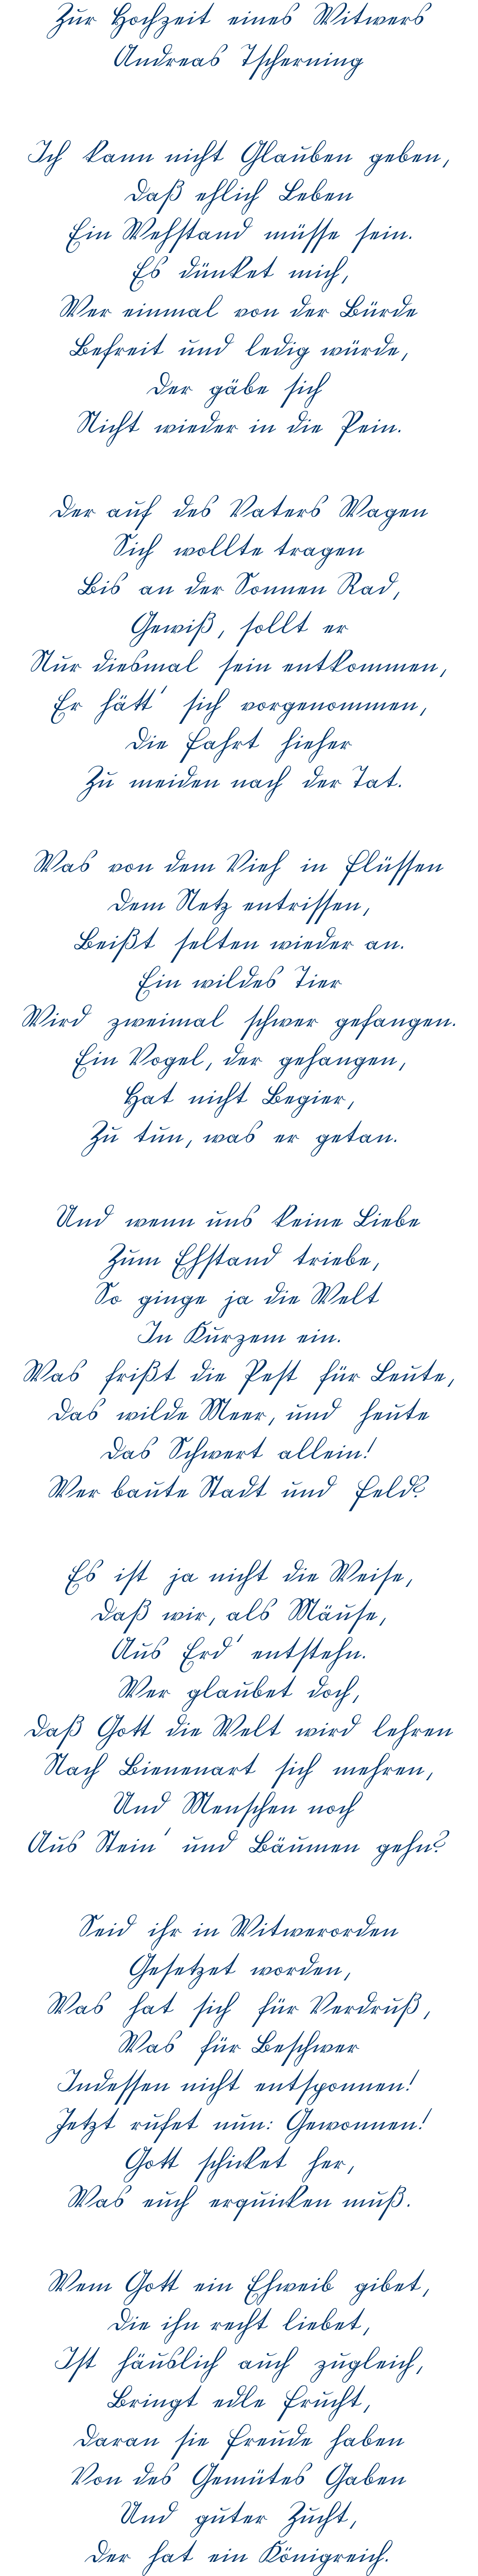 Zur Hochzeit eines Witwers
Andreas Tscherning
Ich kann nicht Glauben geben,
Daß ehlich Leben
Ein Wehstand müsse sein.
Es dünket mich,
Wer einmal von der Bürde
Befreit und ledig würde,
Der gäbe sich
Nicht wieder in die Pein.
Der auf des Vaters Wagen
Sich wollte tragen
Bis an der Sonnen Rad,
Gewiß, sollt er
Nur diesmal sein entkommen,
Er hätt' sich vorgenommen,
Die Fahrt hieher
Zu meiden nach der Tat.
Was von dem Vieh in Flüssen
Dem Netz entrissen,
Beißt selten wieder an.
Ein wildes Tier
Wird zweimal schwer gefangen.
Ein Vogel, der gehangen,
Hat nicht Begier,
Zu tun, was er getan.
Und wenn uns keine Liebe
Zum Ehstand triebe,
So ginge ja die Welt
In Kurzem ein.
Was frißt die Pest für Leute,
Das wilde Meer, und heute
Das Schwert allein!
Wer baute Stadt und Feld?
Es ist ja nicht die Weise,
Daß wir, als Mäuse,
Aus Erd' entstehn.
Wer glaubet doch,
Daß Gott die Welt wird lehren
Nach Bienenart sich mehren,
Und Menschen noch
Aus Stein' und Bäumen gehn?
Seid ihr in Witwerorden
Gesetzet worden,
Was hat sich für Verdruß,
Was für Beschwer
Indessen nicht entsponnen!
Jetzt rufet nun: Gewonnen!
Gott schicket her,
Was euch erquicken muß.
Wem Gott ein Ehweib gibet,
Die ihn recht liebet,
Ist häuslich auch zugleich,
Bringt edle Frucht,
Daran sie Freude haben
Von des Gemütes Gaben
Und guter Zucht,
Der hat ein Königreich.